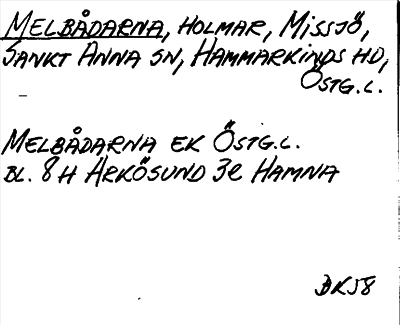 MELBÅDARNA, HOLMAR, MISSJÖ,
SANKT ANNA SN, HAMMARKINDS HD,
ÖSTG.L.
MELBÅDARNA EK ÖSTG.L.
BL. 8H ARKÖSUND 3e HAMNA
BK58